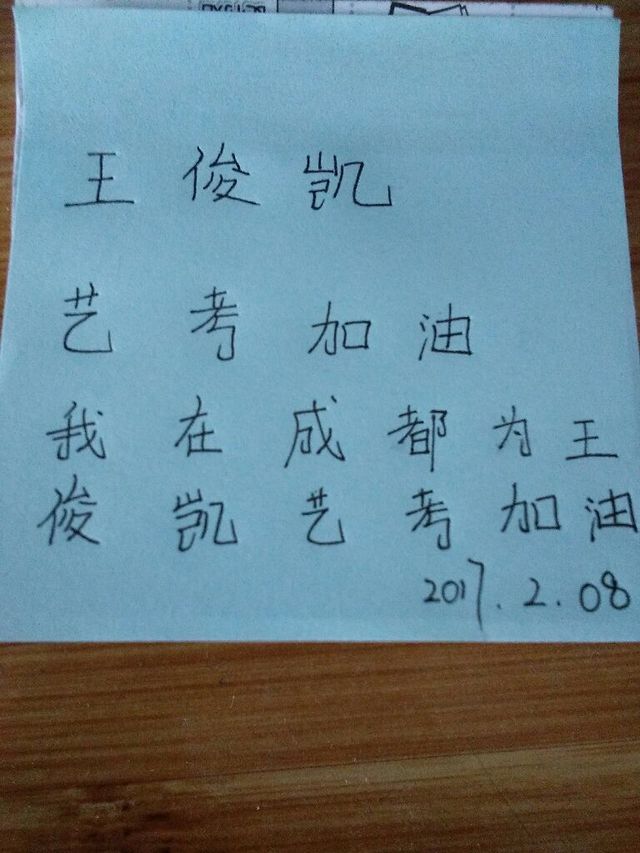 王俊凯
艺考加油
我在成都为王
俊凯艺考加油
2017.2.08